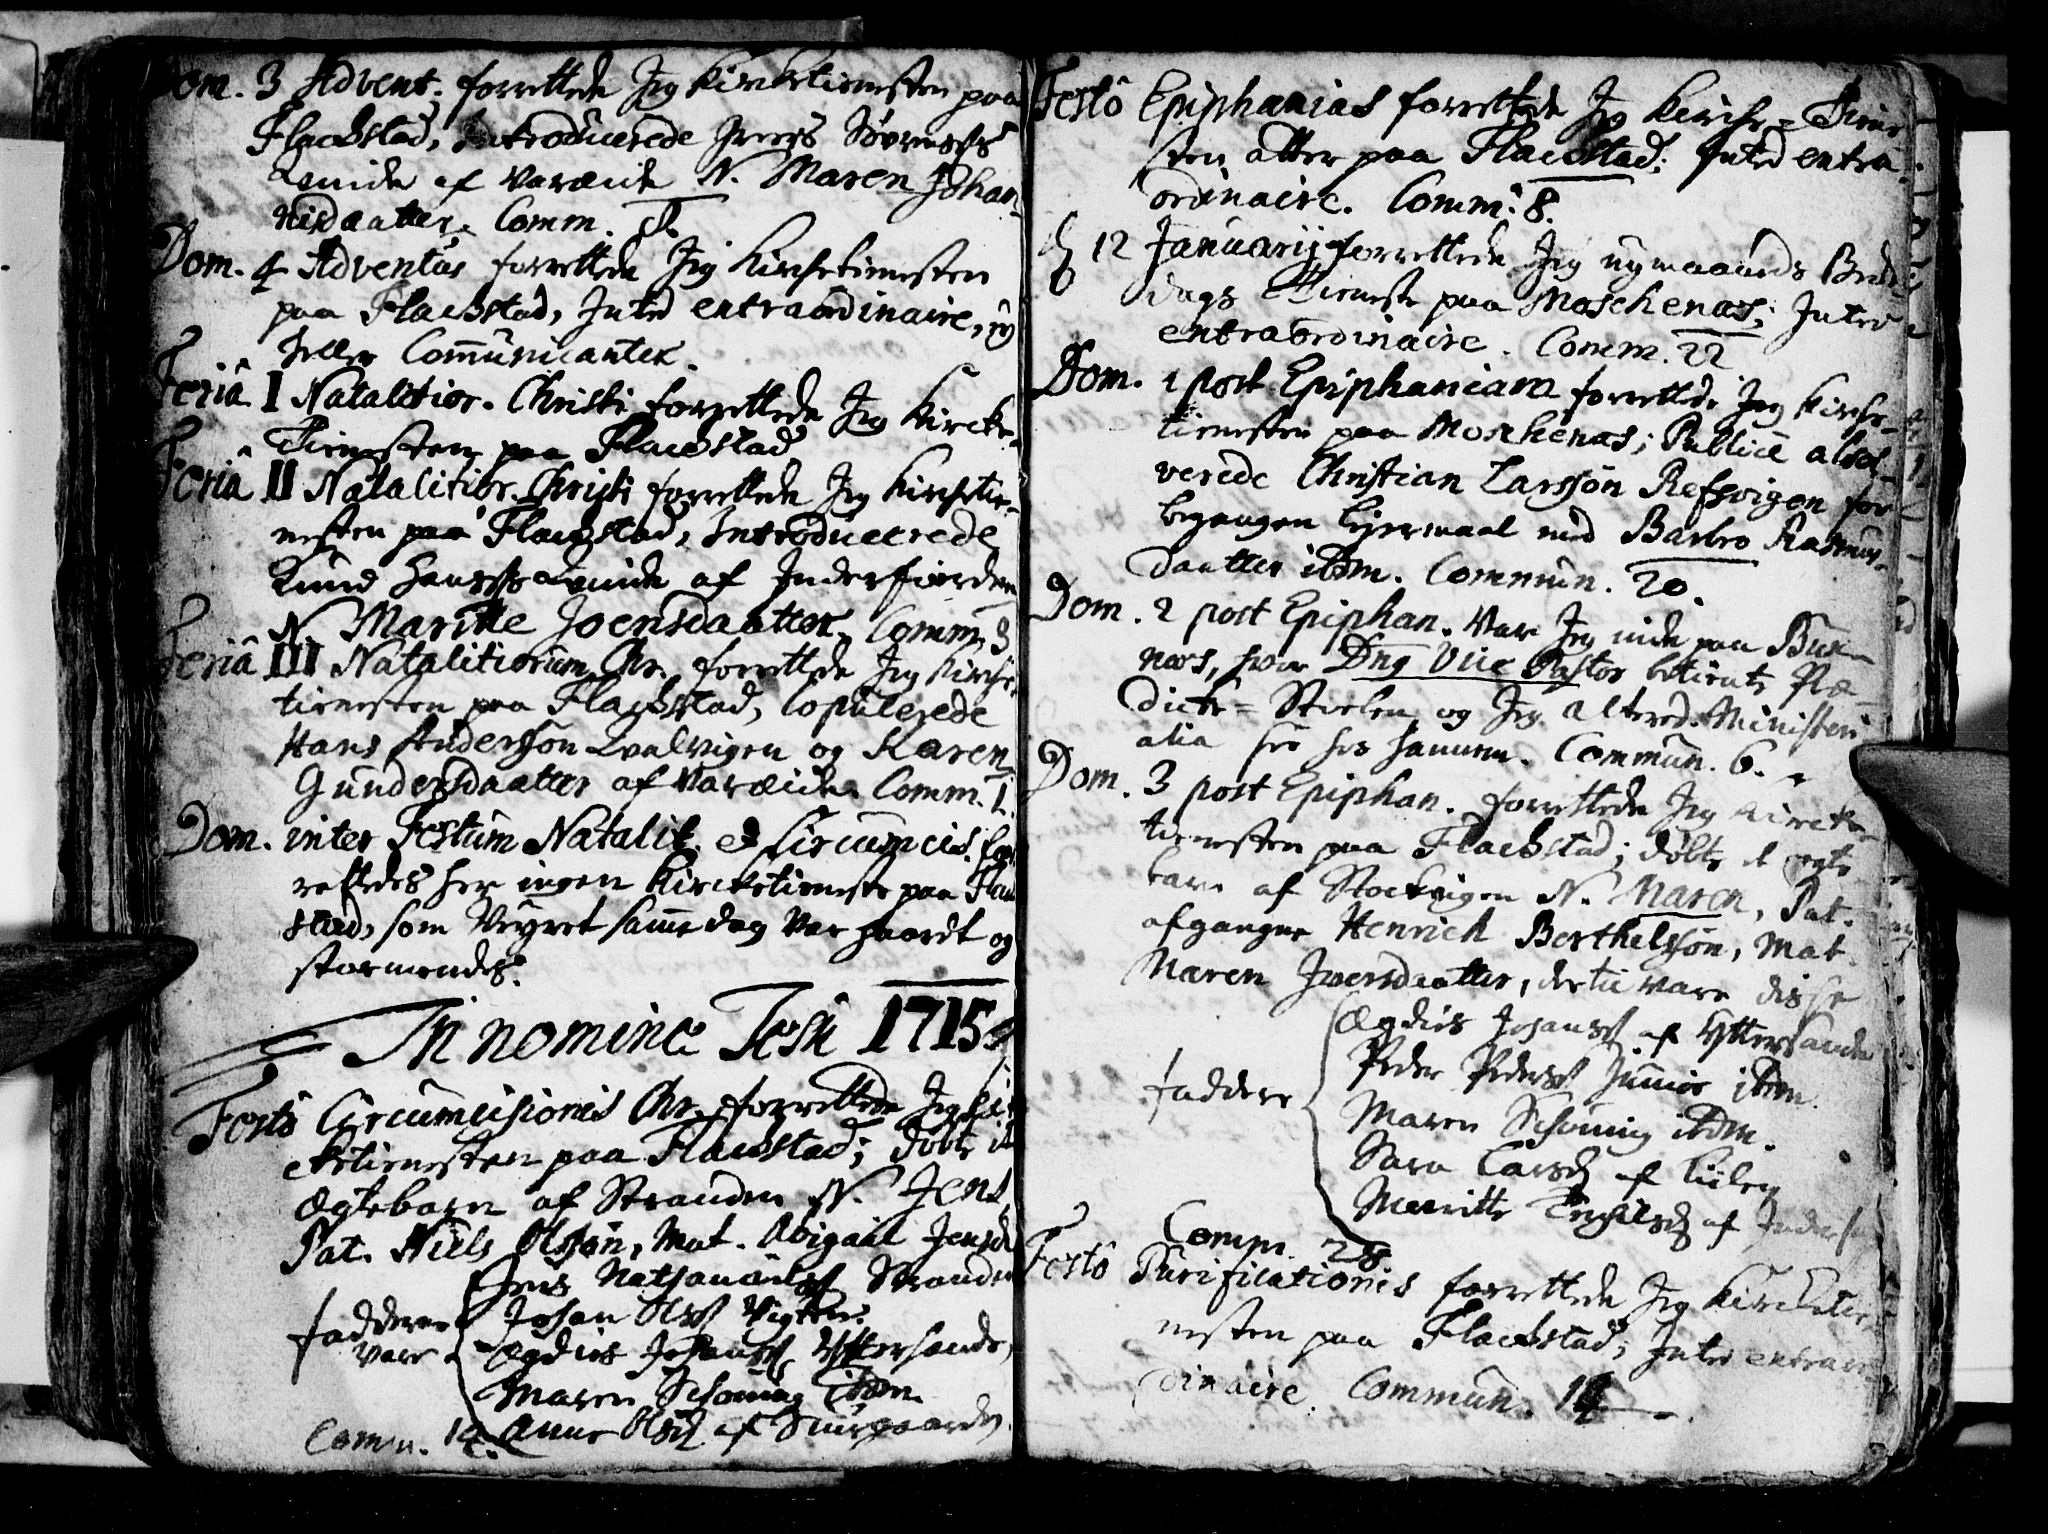 Dom. 3 Advent. forrettede Jeg Kircketienesten paa
Flackstad, Introducerede Ivers Sørensøns
Qvinde af Varæide N. Maren Johan-
nisdaatter. Comm.
Dom. 4 Adventus forrettede Jeg Kirchetienesten
paa Flackstad, Inted extraordinaire, ey
heller Communicanter.
Feriâ I Natalitior. Christi forrettede Jeg Kircke-
Tienesten paa Flackstad
Feriâ II Natalitior. Christi forrettede Jeg Kirchetie-
nesten paa Flackstad, Introducerede
Knud Hanssøns Qvinde af Inderfiorden
N. Maritte Joensdaatter. Comm. 3
Feriâ III Natalitiorum Chr. forrettede Jeg Kirche-
tienesten paa Flackstad, Copulerede
Hans Andersson Qvalvigen og Karen
Gundersdaatter af Varæide. Comm. 1.
Dom. inter Festum Natalit. et Circumcis. for-
rettedes her ingen Kircketieneste paa Flack
stad, som Veyret samme dag var haardt og
stormendes.
In nomine Jesu 1715
Festô Circumcisionis Chr. forrettede Jeg Kir
cketienesten paa Flackstad; Døbte it
Ægtebarn af Stranden N. Jens,
Pat. Niels Olsson, Mat. Abigael Jensd
Jens Nathanaelss Stranden
Faddere Johan Olss Vigten.
vare Ægdies Johanss Yttersande,
Maren Schøning ibdm.
Comm. 14. Anne Olsd af
Festô Epiphanias forrettede Jeg Kirche-Tiene
sten atter paa Flackstad; Inted extra
ordinaire. Comm: 8.
d 12 Januarij forrettede Jeg nymaaneds Bede-
dags Tieneste paa Moschenæs; Inted
extraordinaire. Comm. 22
Dom. 1 post Epiphaniam forrettede Jeg Kirche-
tienesten paa Moschenæs; Publicè absol-
verede Christian Larssøn Refsvigen for
begangen lejermaal med Barbro Rasmus-
daatter ibdm. Commun. 20.
Dom. 2 post Epiphan. Var Jeg inde paa Bux-
næs, hvor Dng Vice Pastor betiente Præ-
dicke-Stolen og Jeg altered. Ministeri
alia for hannem. Commun. 6.
Dom. 3 post Epiphan. forrettede Jeg Kircke-
tienesten paa Flackstad; døbte et ægte
barn af Stockvigen N. Maren, Pat.
afgangne Henrich Berthelssøn, Mat.
Maren Iversdaatter, dertil vare disse
Ægdies Johanss af Yttersande
Peder Pederss Junior ibdm.
Faddere Maren Schøning ibdm.
Sara Larsd af
Maritte af Inderf
Comm. 28
Festô Purificationis forrettede Jeg Kircketie-
nesten paa Flackstad; Inted extraor-
dinaire. Commun. 14